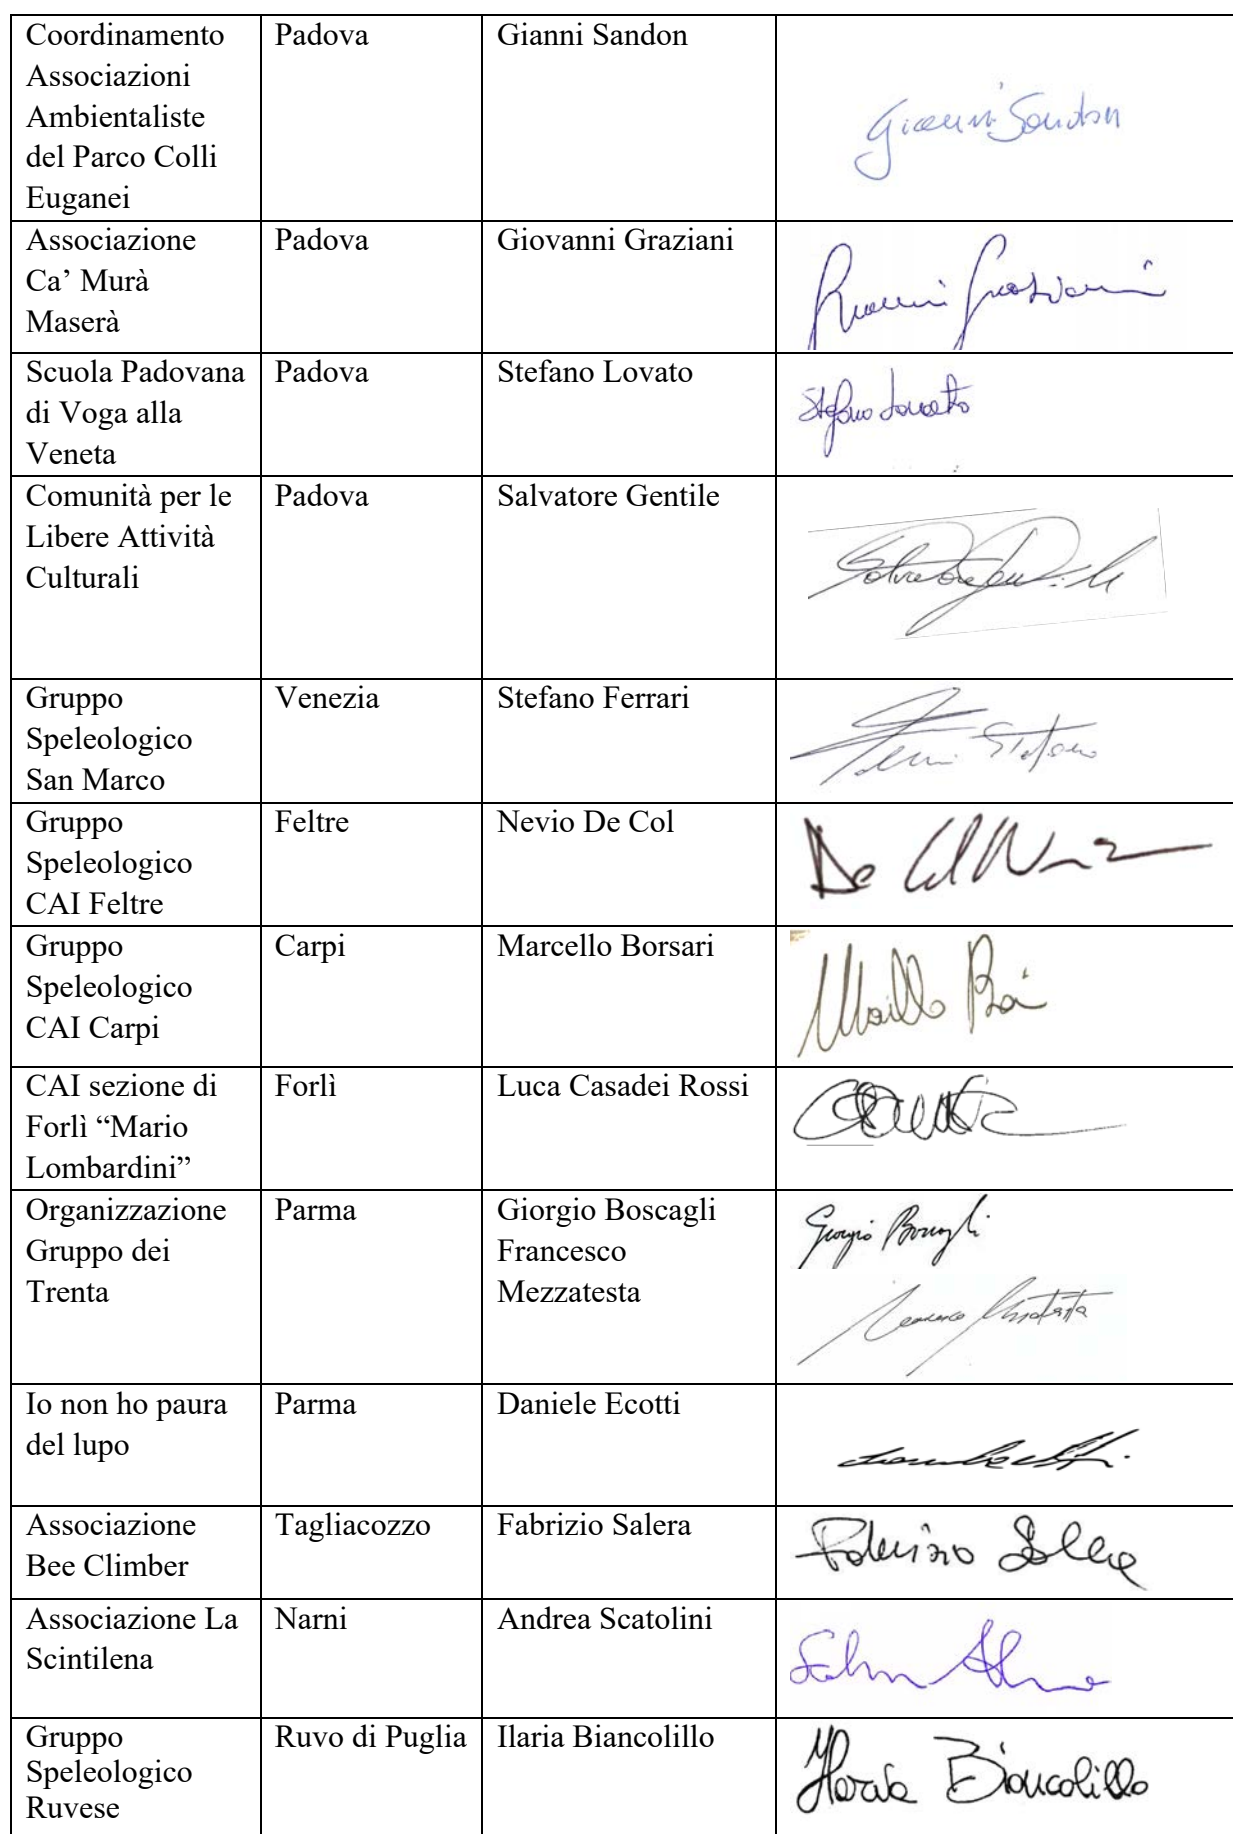 Coordinamento
Associazioni
Ambientaliste
del Parco Colli
Euganei
Padova
Gianni Sandon
Gianni Sandon
Associazione
Ca’ Murà
Maserà
Padova
Giovanni Graziani
Graziani
Scuola Padovana
di Voga alla
Veneta
Padova
Stefano Lovato
Stefano Lovato
Comunità per le
Libere Attività
Culturali
Padova
Salvatore Gentile
Salvatore Gentile
Gruppo
Speleologico
San Marco
Venezia
Stefano Ferrari
Ferrari Stefano
Gruppo
Speleologico
CAI Feltre
Feltre
Nevio De Col
De Col
Gruppo
Speleologico
CAI Carpi
Carpi
Marcello Borsari
CAI sezione di
Forlì “Mario
Lombardini”
Forlì
Luca Casadei Rossi
Organizzazione
Gruppo dei
Trenta
Parma
Giorgio Boscagli
Francesco
Mezzatesta
Giorgio Boscagli
Francesco Mezzatesta
Io non ho paura
del lupo
Parma
Daniele Ecotti
Associazione
Bee Climber
Tagliacozzo
Fabrizio Salera
Fabrizio Salera
Associazione La
Scintilena
Narni
Andrea Scatolini
Gruppo
Speleologico
Ruvese
Ruvo di Puglia
Ilaria Biancolillo
Ilaria Biancolillo